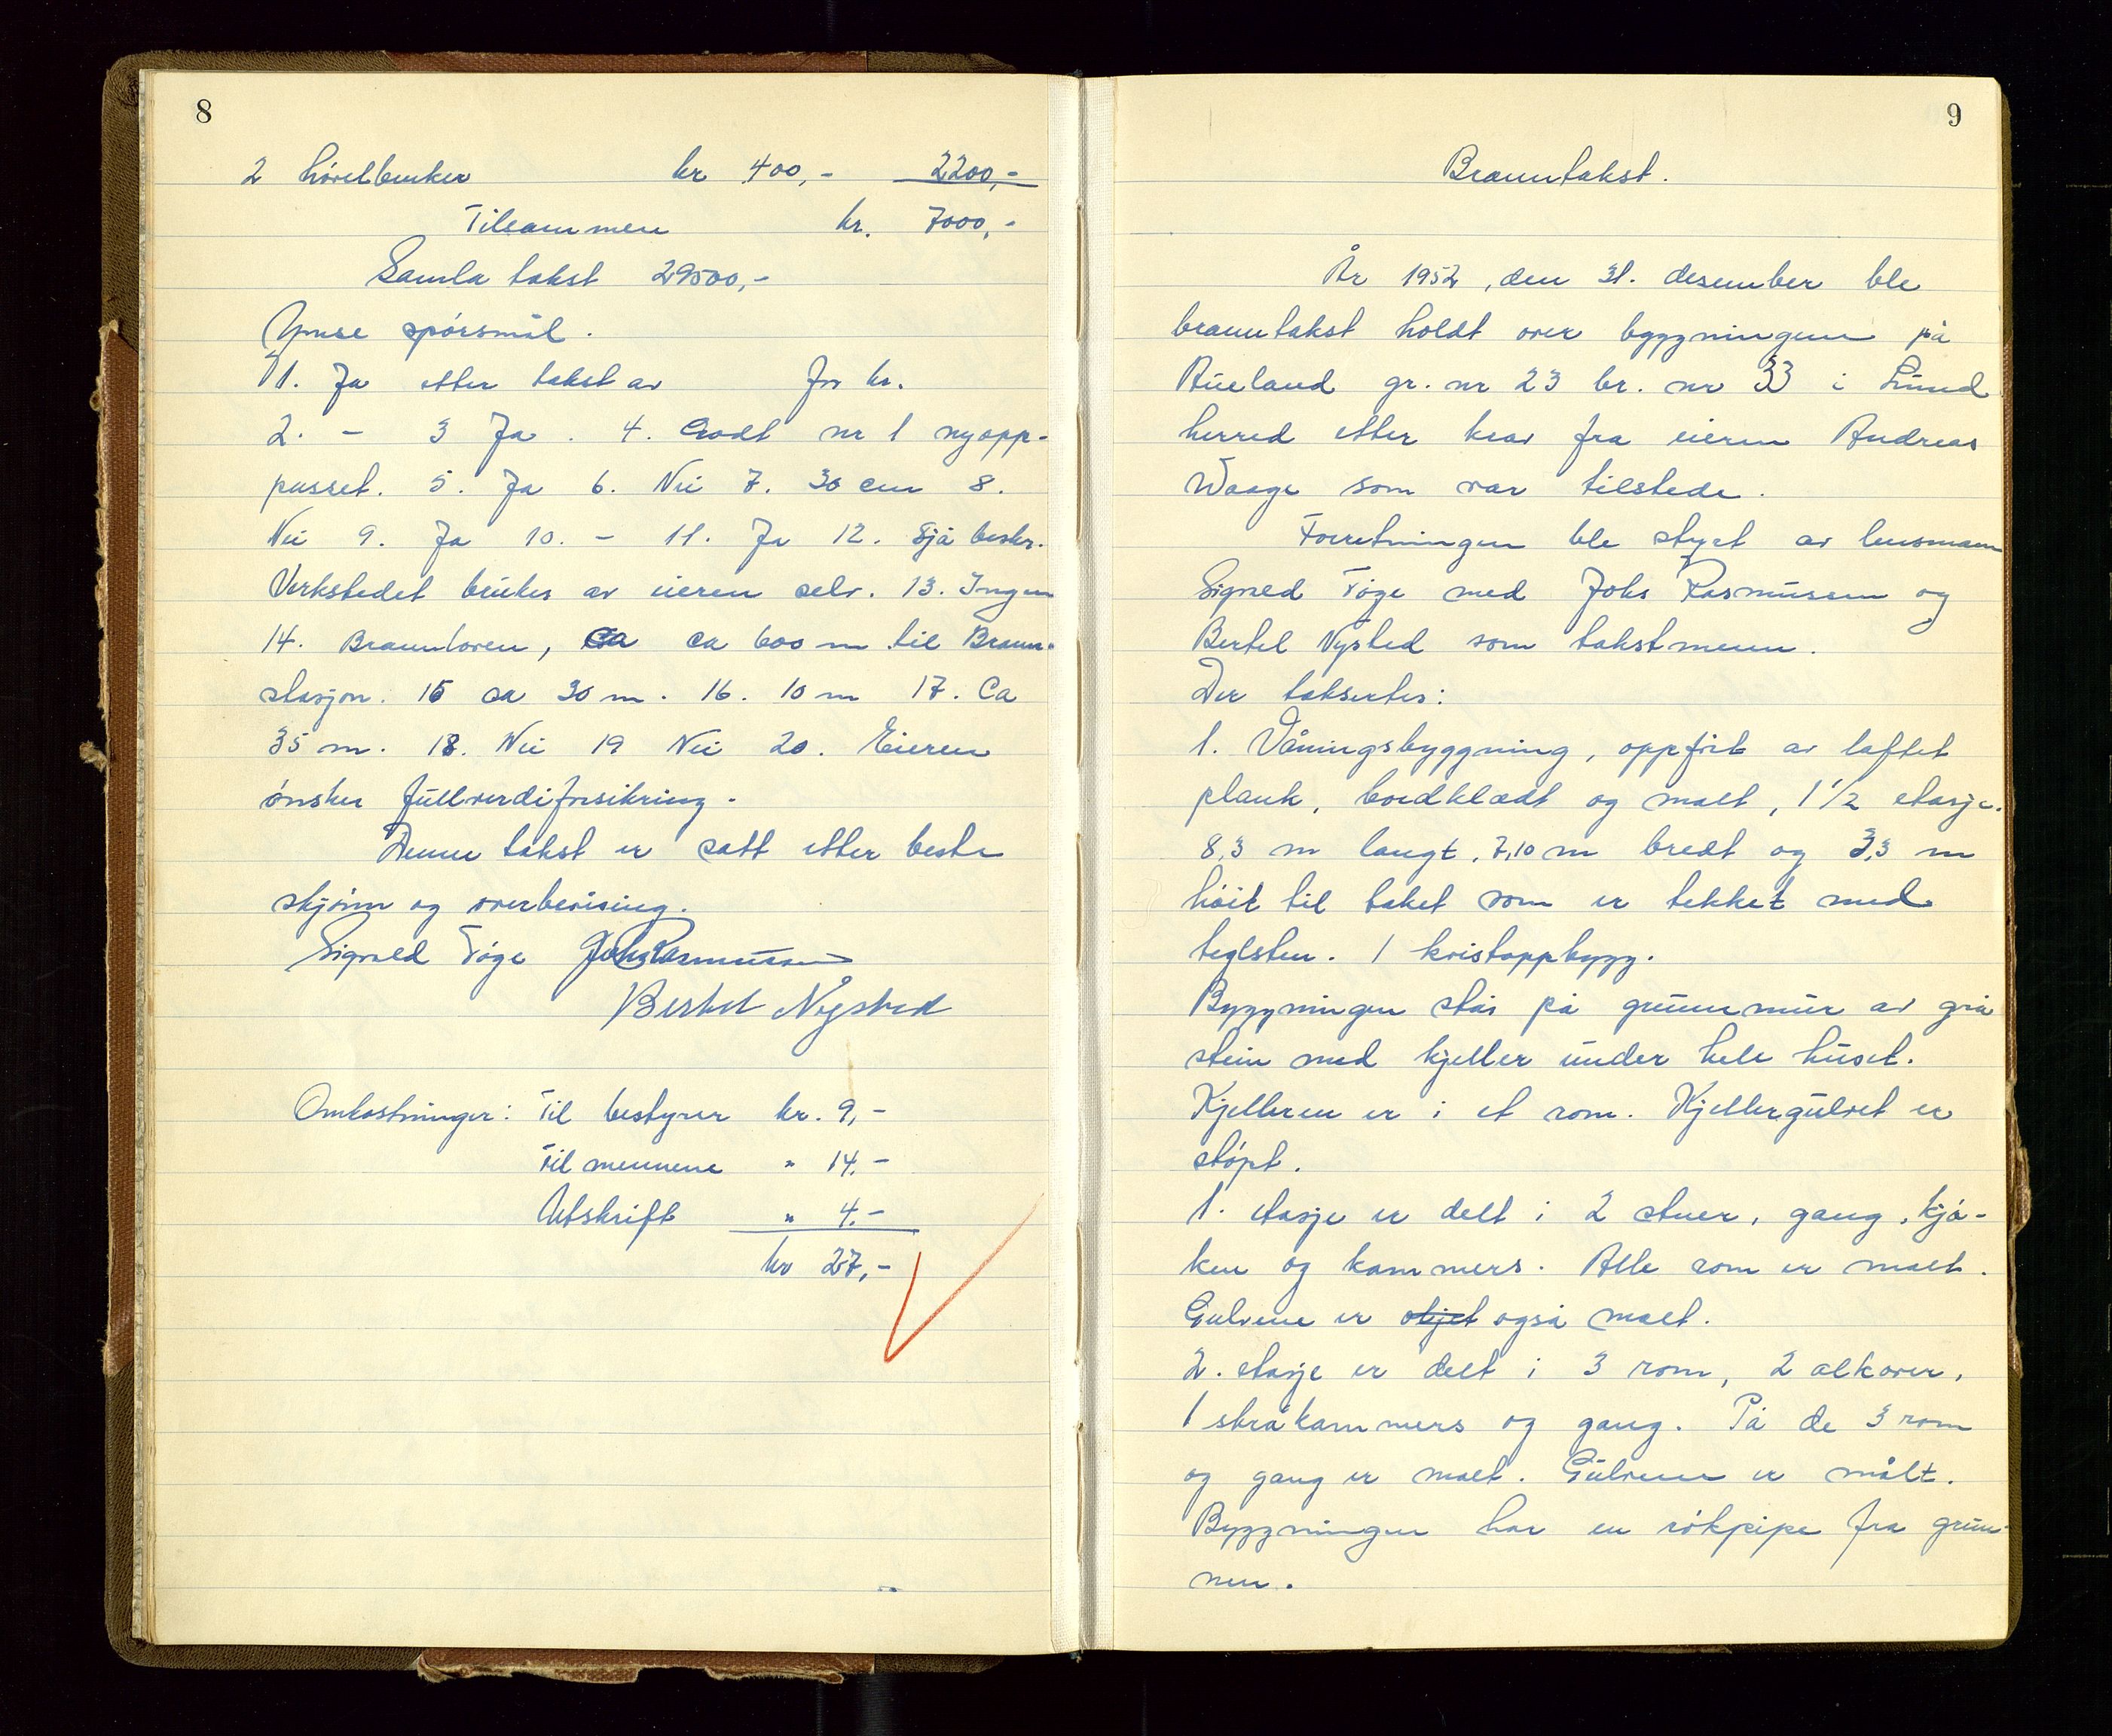 8
2 høvelbenker kr 400,- 2200,-
Tilsammen kr. 7000,-
Samla takst 29500,-
Ymse spørsmål.
1. Ja etter takst av for kr.
2. - 3 Ja. 4. Godt nr 1 nyopp-
pusset. 5. Ja 6. Nei 7. 30 cm 8.
Nei 9. Ja 10. - 11. Ja 12. Sjå beskr.
Verkstedet brukes av eieren selv. 13. Ingen
14. Brannloven, ca ca 600 m til Brann-
stasjon. 15 ca 30 m. 16. 10 m 17. Ca
35 m. 18. Nei 19 Nei 20. Eieren
ønsker fullverdiforsikring.
Denne takst er satt etter beste
skjønn og overbevising.
Sigvald Tøge Johs Rasmussen
Bertel Nysted
Omkostninger: Til bestyrer kr. 9,-
Til mennene " 14.-
Utskrift " 4.-
kr 27,-
9
Branntakst.
År 1952, den 31. desember ble
branntakst holdt over byggningene på
Rueland gr. nr 23 br. nr 33 i Lund
herred etter krav fra eieren Andreas
Waage som var tilstede.
Forretningen ble styrt av lensmann
Sigvald Tøge med Johs Rasmussen og
Bertel Nysted som takstmenn.
Der taksertes:
1. Våningsbyggning, oppført av laftet
plank, bordklædt og malt, 1 1/2 etasje.
8,3 m langt, 7,10 m bredt og 3,3 m
høit til taket som er tekket med
teglsten. 1 kvistoppbygg.
Byggningen står på grunnmur av grå
stein med kjeller under hele huset.
Kjelleren er i et rom. Kjellergulvet er
støpt.
1. etasje er delt i 2 stuer, gang, kjø-
ken og kammers. Alle rom er malt.
Gulvene er oljet også malt.
2. etasje er delt i 3 rom, 2 alkover,
1 stråkammers og gang. På de 3 rom
og gang er malt. Gulvene er målt.
Byggningen har en rökpipe fra grun-
nen.